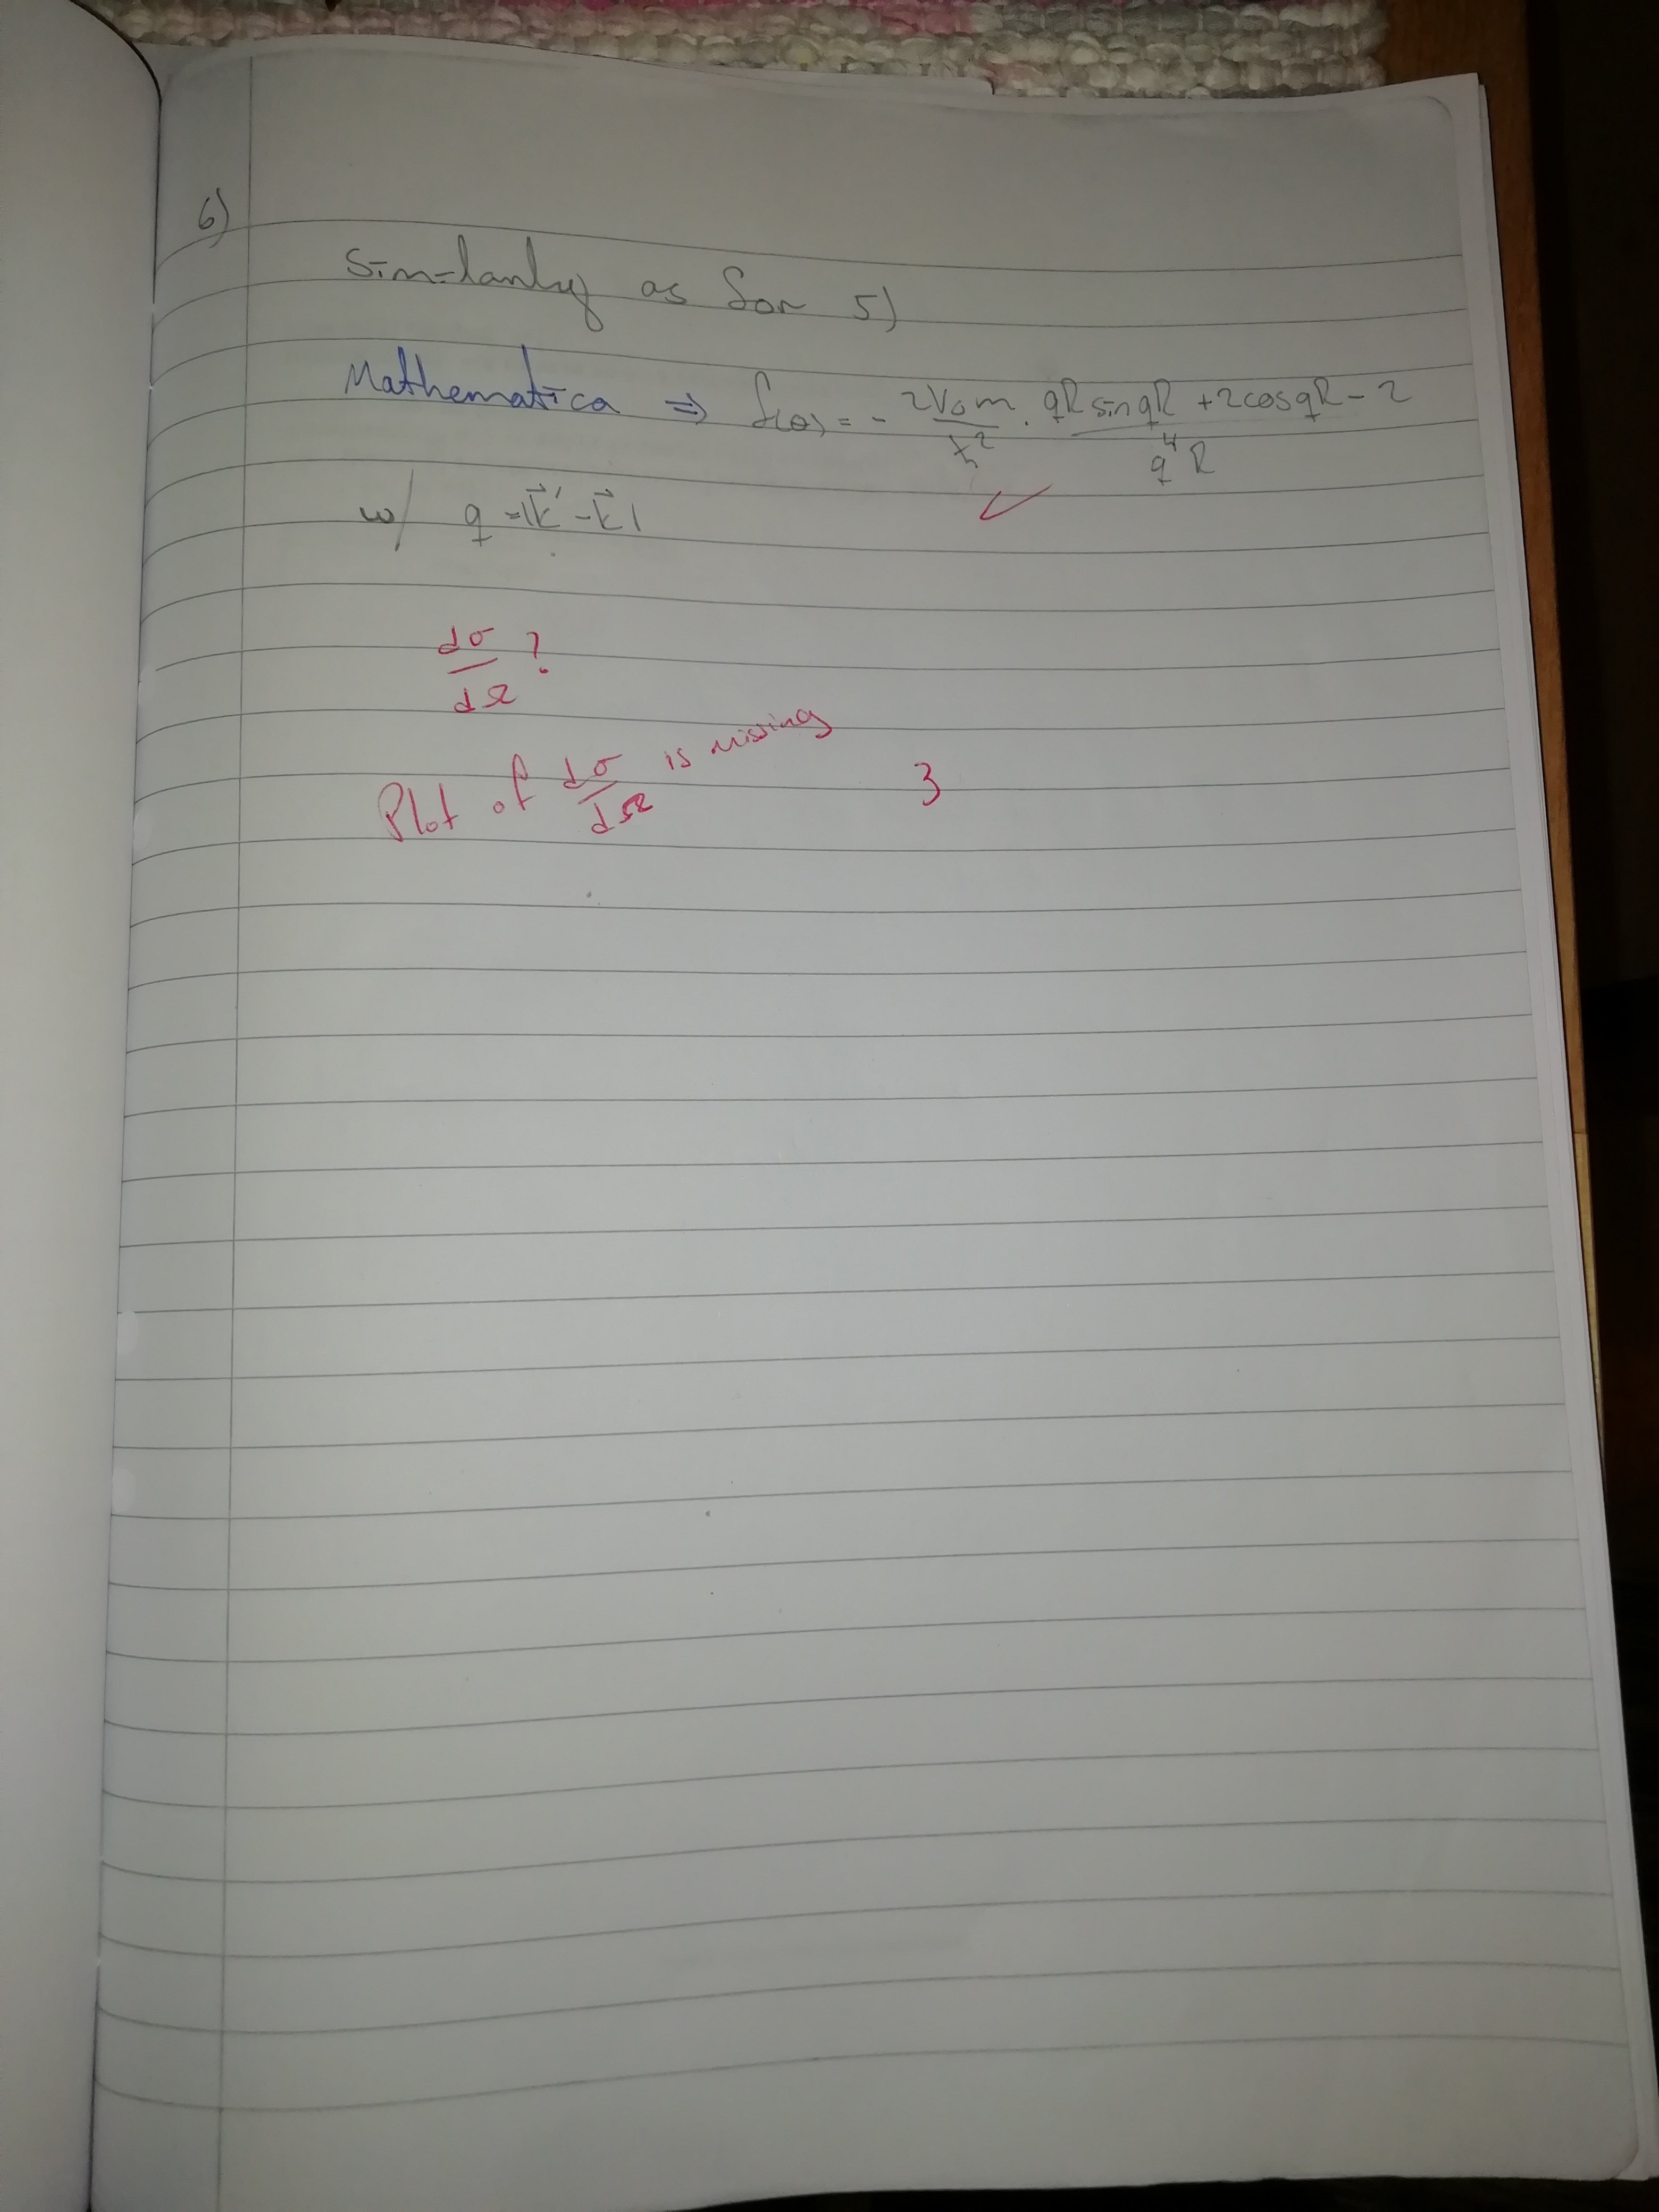 6)
Similarly as for 5)
Mathematica ⇒ f(θ) = - 2V₀m/ħ² · (qR sin qR + 2cos qR - 2)/(q⁴R)
w/ q = |k⃗' - k⃗|
dσ/dΩ ?
Plot of dσ/dΩ is missing 3